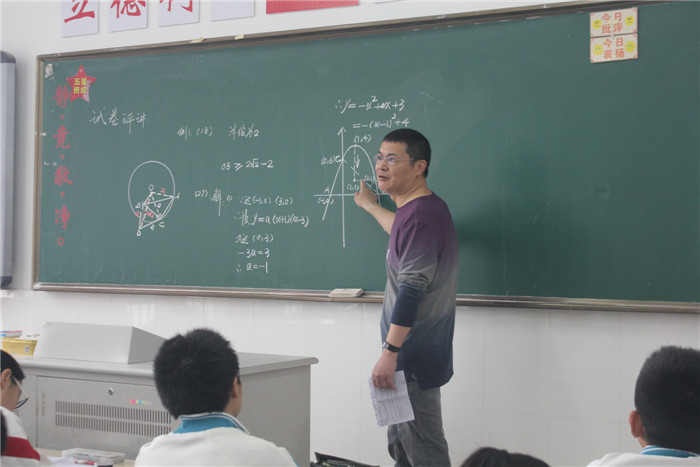 立德
今日批评
今日表扬
五星班级
静·竞·敬·净
试卷评讲
例1 (18) 半径为2
OB ≥ 2√2 - 2
(27) 解 (1) ∵过(-1,0) (3,0)
∴设 y = a(x+1)(x-3)
过(0,3)
-3a = 3
∴ a = -1
= -(x-1)²+4
(1,4)
(0,3)
A
O
A
B
C